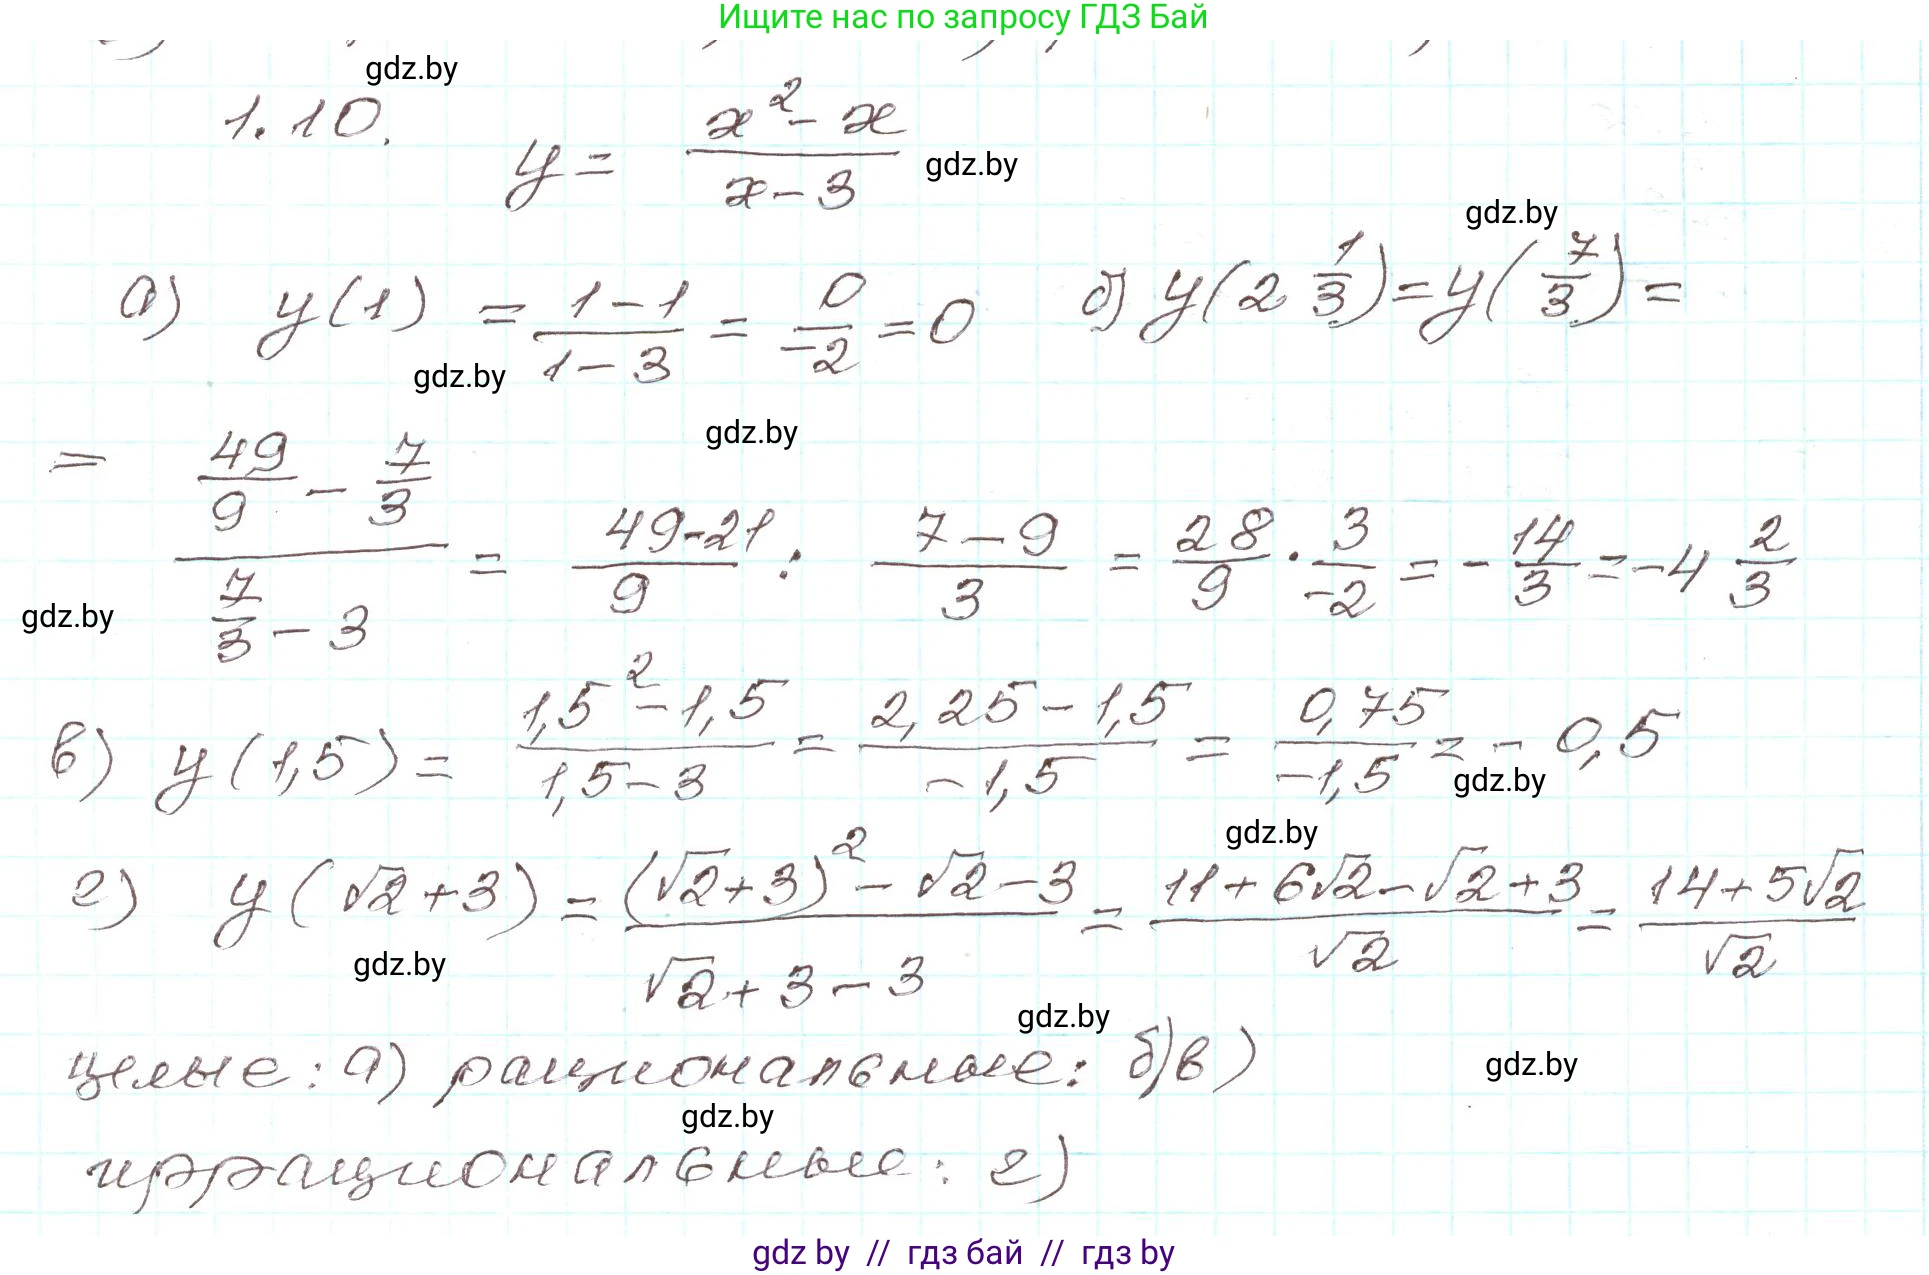 Ищите нас по запросу ГДЗ Бай
gdz.by
1.10. y = (x² - x)/(x - 3)
gdz.by
gdz.by
а) y(1) = (1-1)/(1-3) = 0/-2 = 0 б) y(2 1/3) = y(7/3) =
gdz.by
gdz.by
= (49/9 - 7/3)/(7/3 - 3) = (49-21)/9 : (7-9)/3 = 28/9 · 3/-2 = -14/3 = -4 2/3
gdz.by
в) y(1,5) = (1,5² - 1,5)/(1,5 - 3) = (2,25 - 1,5)/(-1,5) = 0,75/-1,5 = -0,5
gdz.by
gdz.by
г) y(√2+3) = ((√2+3)² - √2 - 3)/(√2+3-3) = (11+6√2-√2+3)/√2 = (14+5√2)/√2
gdz.by
gdz.by
целые: а) рациональные: б) в)
gdz.by
gdz.by
иррациональные: г)
gdz by // гдз бай // гдз by